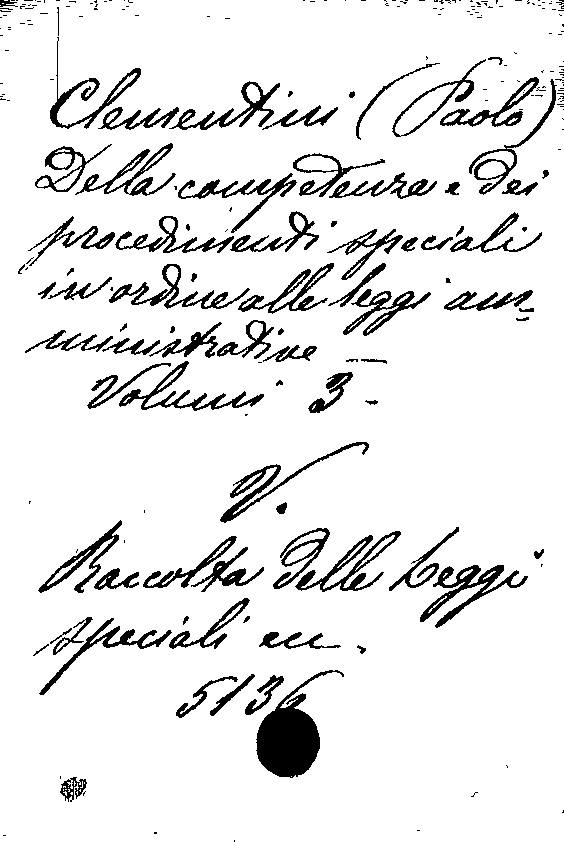 Clementini (Paolo)
Della competenza e dei
procedimenti speciali
in ordine alle leggi am=
ministrative —
Volumi 3 -
V.
Raccolta delle Leggi
speciali
5136